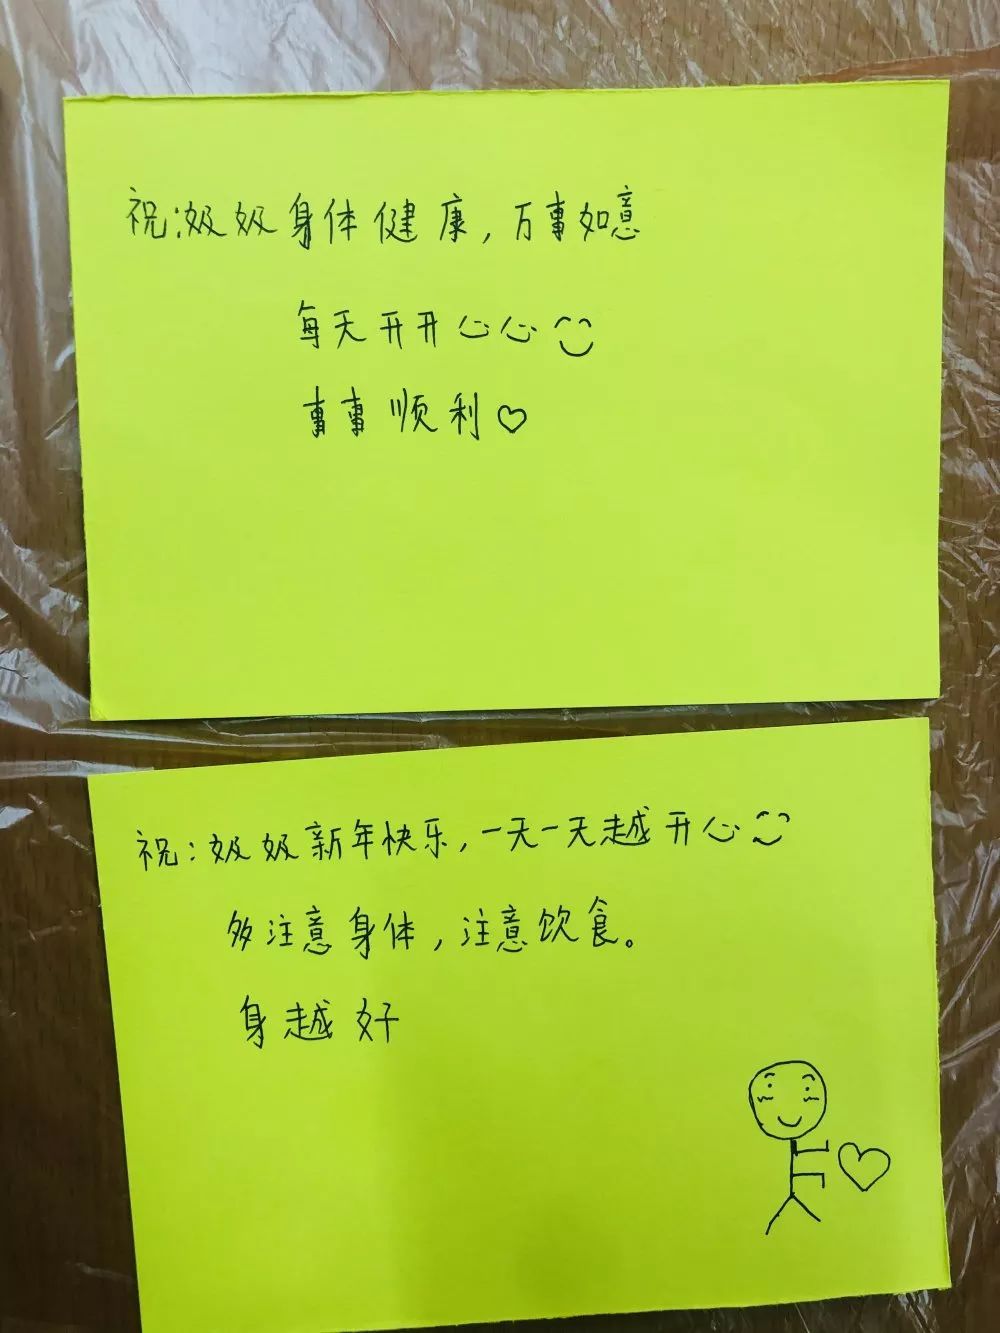 祝:奶奶身体健康,万事如意
每天开开心心
事事顺利♡
祝:奶奶新年快乐,一天一天越开心
多注意身体,注意饮食。
身越好